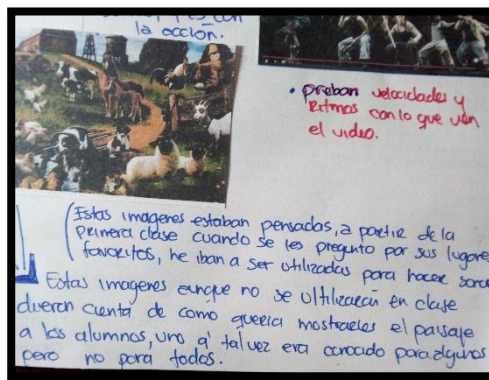 la acción.
• prueban velocidades y
Ritmos con lo que ven
el video.
Estas imagenes estaban pensadas, a partir de la
primera clase cuando se les pregunto por sus lugares
favoritos, he iban a ser utilizadas para hacer
Estas imagenes aunque no se ultilizaron en clase
dieron cuenta de como queria mostrarles el paisaje
a los alumnos, uno q' tal vez era conocido para algunos
pero no para todos.